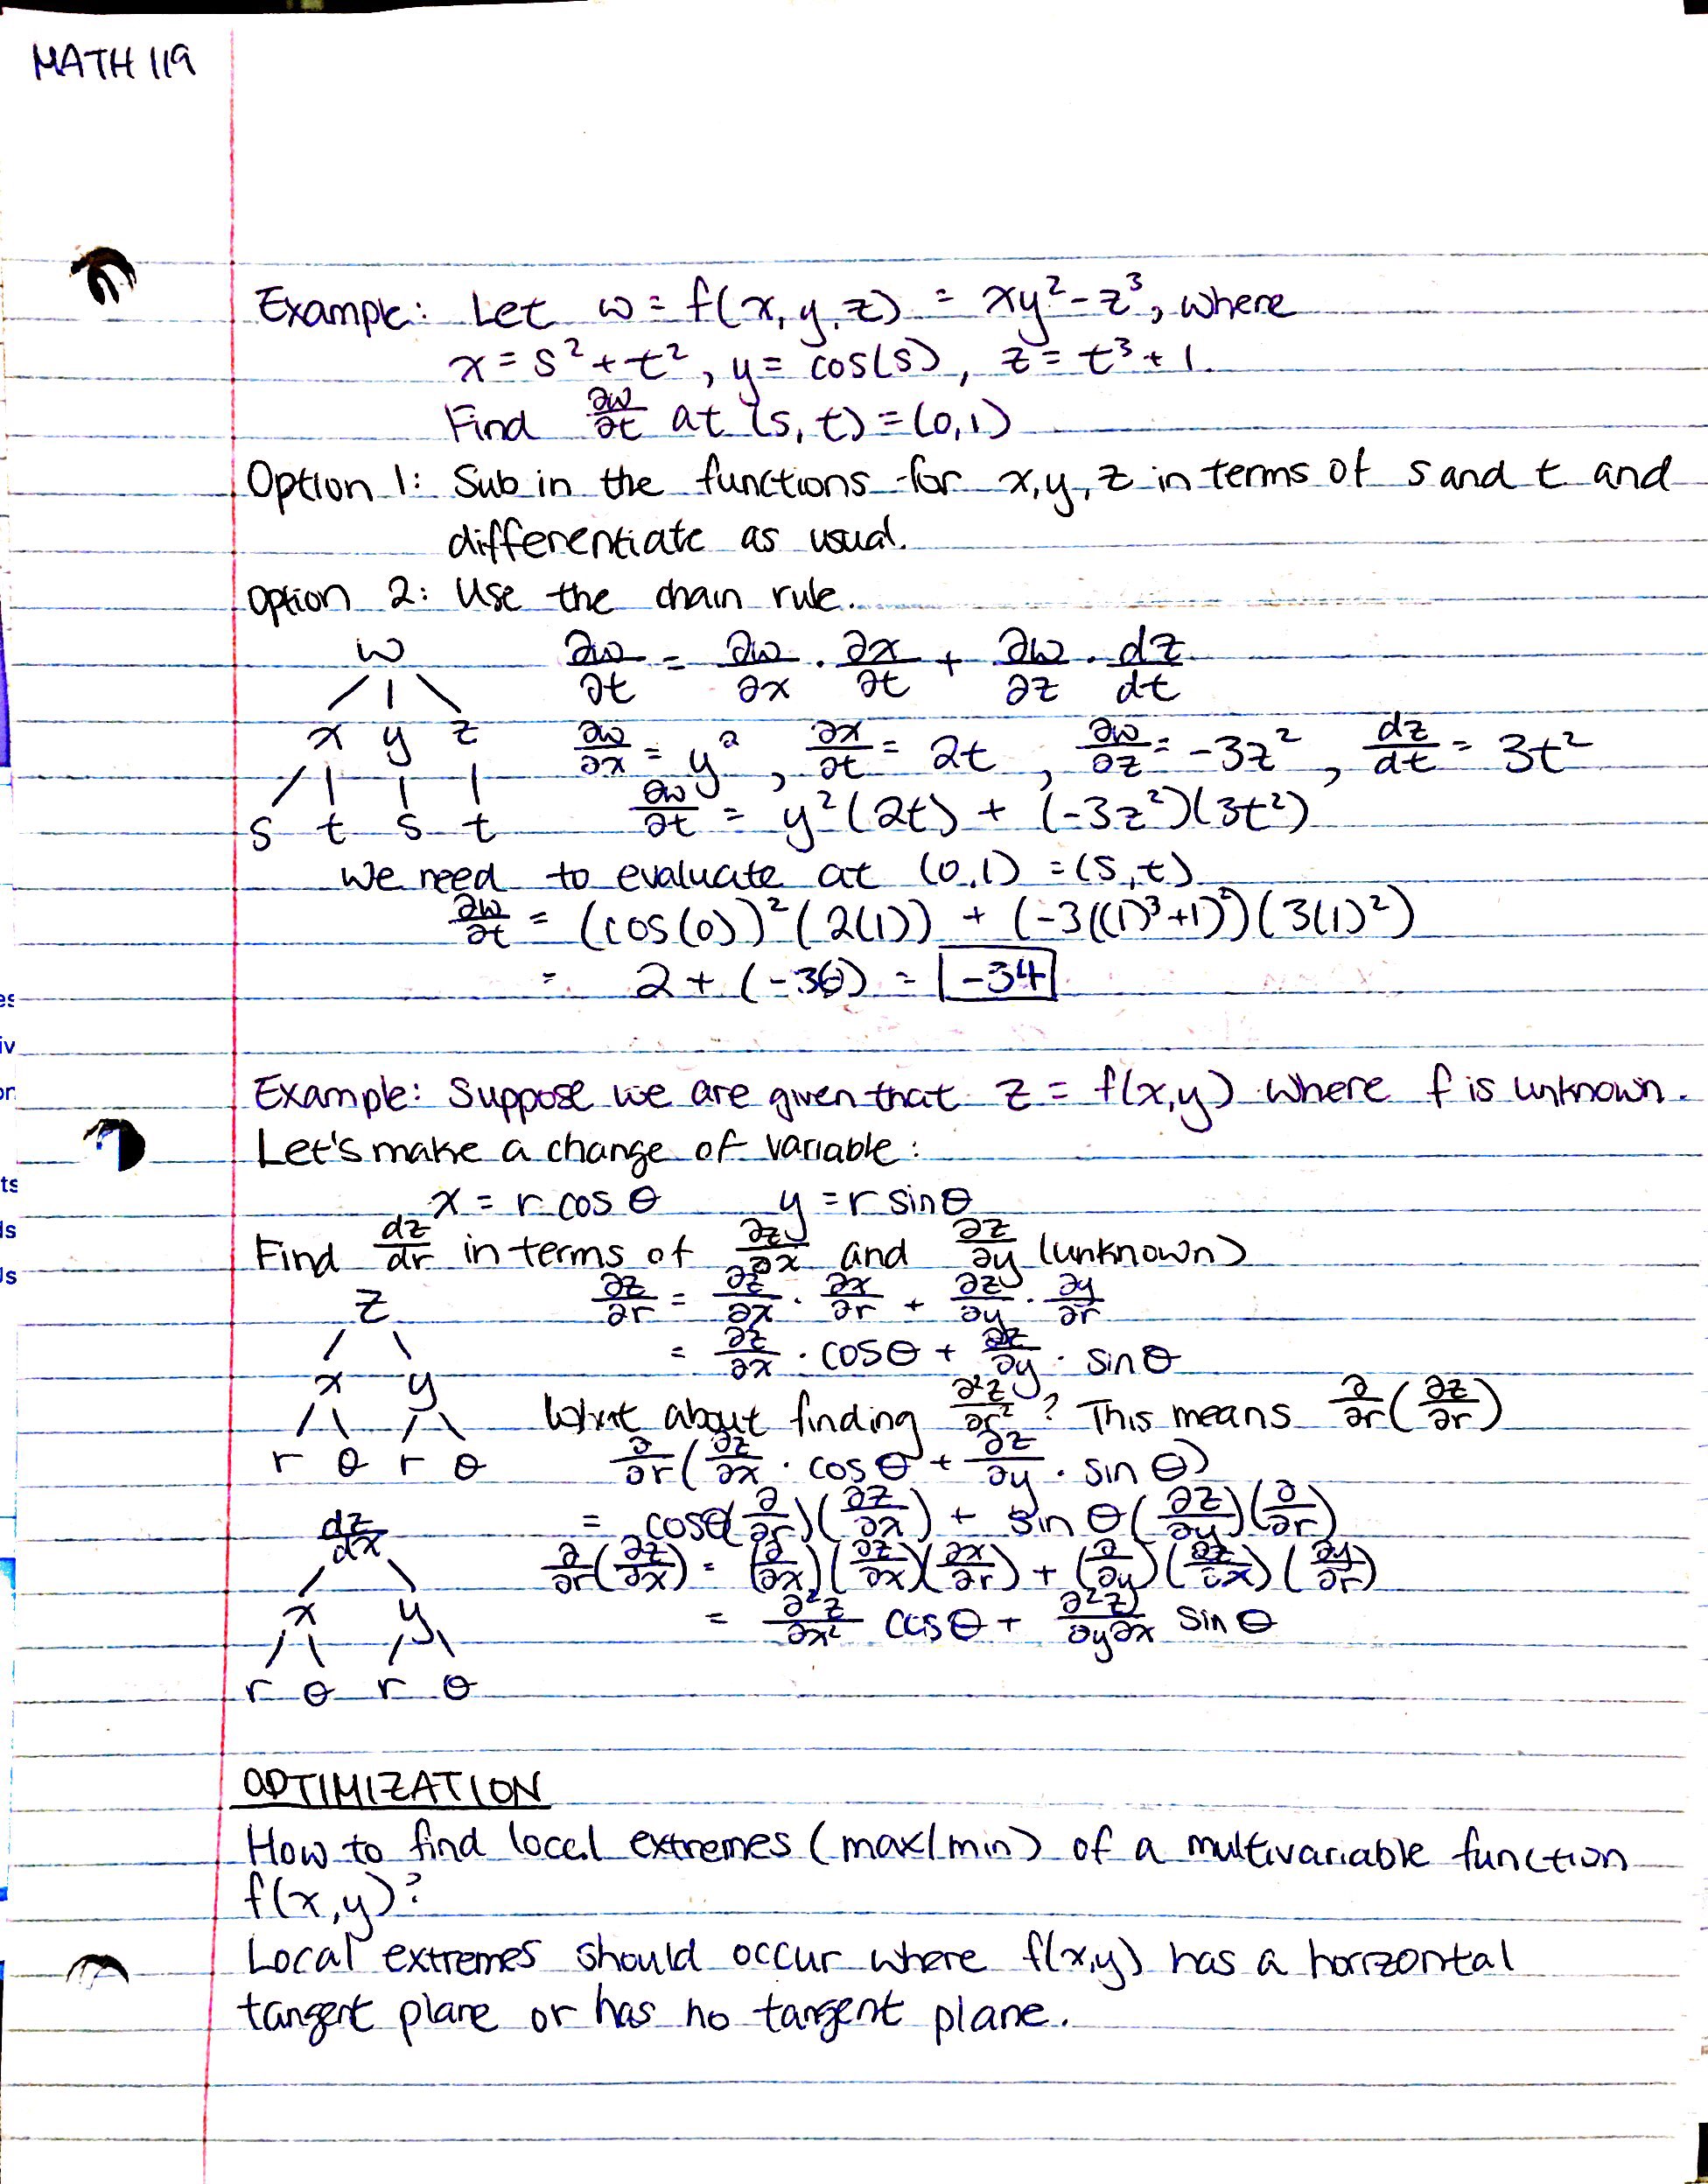 MATH 119
Example: Let w = f(x, y, z) = xy² - z³, where
x = s² + t², y = cos(s), z = t³ + 1
Find ∂w/∂t at (s, t) = (0,1)
Option 1: Sub in the functions for x, y, z in terms of s and t and
differentiate as usual.
Option 2: Use the chain rule.
w
∂w/∂t = ∂w/∂x · ∂x/∂t + ∂w/∂z · dz/dt
x y z
∂w/∂x = y², ∂x/∂t = 2t, ∂w/∂z = -3z², dz/dt = 3t²
s t s t
∂w/∂t = y²(2t) + (-3z²)(3t²)
We need to evaluate at (0,1) = (s,t)
∂w/∂t = (cos(0))²(2(1)) + (-3((1)³+1)²)(3(1)²)
= 2 + (-36) = -34
es
iv
Example: Suppose we are given that z = f(x,y) where f is unknown.
or
Let's make a change of variable:
ts
x = r cos θ y = r sin θ
ds
Find dz/dr in terms of ∂z/∂x and ∂z/∂y (unknown)
z
∂z/∂r = ∂z/∂x · ∂x/∂r + ∂z/∂y · ∂y/∂r
= ∂z/∂x · cos θ + ∂z/∂y · sin θ
x y
What about finding ∂²z/∂r²? This means ∂/∂r(∂z/∂r)
r θ r θ
∂/∂r(∂z/∂x · cos θ + ∂z/∂y · sin θ)
= cos θ(∂/∂r)(∂z/∂x) + sin θ(∂z/∂y)(∂/∂r)
dz/dx
∂/∂r(∂z/∂x) = (∂/∂x)(∂z/∂x)(∂x/∂r) + (∂/∂y)(∂z/∂x)(∂y/∂r)
x y
= ∂²z/∂x² cos θ + ∂²z/∂y∂x sin θ
r θ r θ
OPTIMIZATION
How to find local extremes (max/min) of a multivariable function
f(x,y)?
Local extremes should occur where f(x,y) has a horizontal
tangent plane or has no tangent plane.